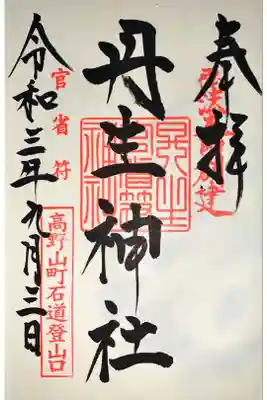 奉拝
丹生神社
官省符
令和三年九月三日
高野山町石道登山口